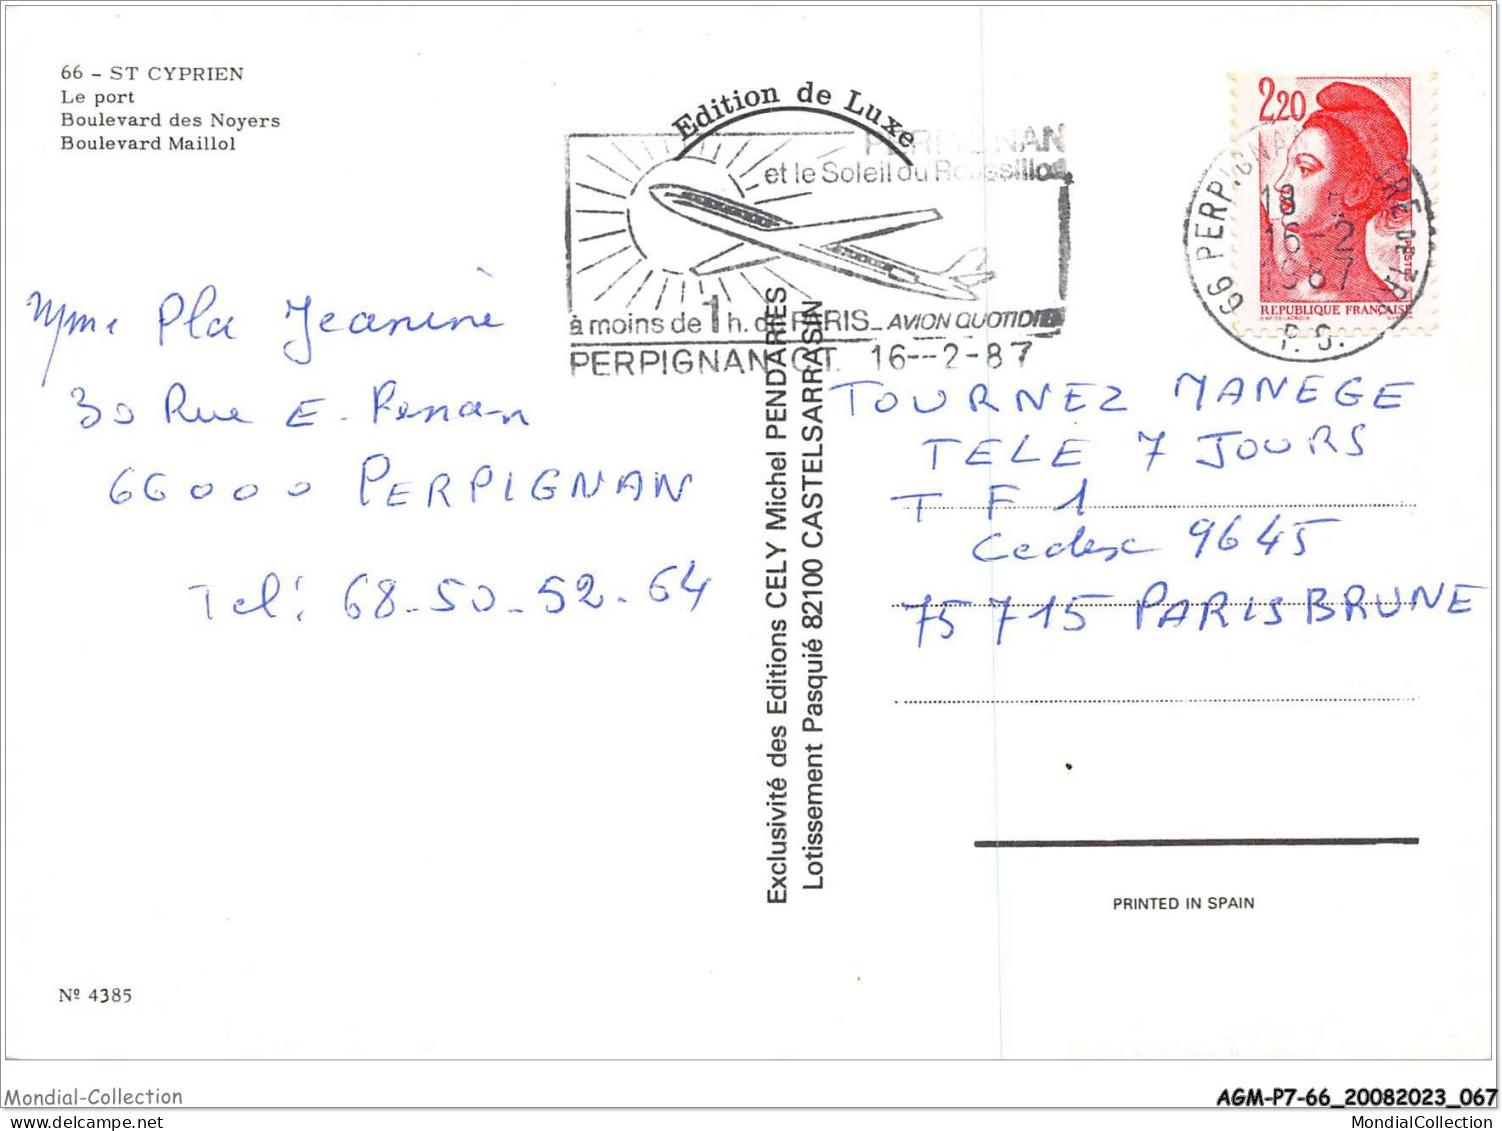 66 - ST CYPRIEN
Le port
Boulevard des Noyers
Boulevard Maillol
Edition de Luxe
PERPIGNAN
et le Soleil du Roussillon
à moins de 1 h. de PARIS_AVION QUOTIDIEN
PERPIGNAN CT. 16--2-87
2,20
POSTES
REPUBLIQUE FRANÇAISE
66 PERPIGNAN
18
16-2
1987
P.O.
Mme Pla Jeanine
30 Rue E. Renan
66000 PERPIGNAN
Tel: 68-50-52-64
Exclusivité des Editions CELY Michel PENDARIES
Lotissement Pasquié 82100 CASTELSARRASIN
TOURNEZ MANEGE
TELE 7 JOURS
T F 1
Cedex 9645
75715 PARIS BRUNE
PRINTED IN SPAIN
Nº 4385
Mondial-Collection
AGM-P7-66_20082023_067
MondialCollection
MondialCollection